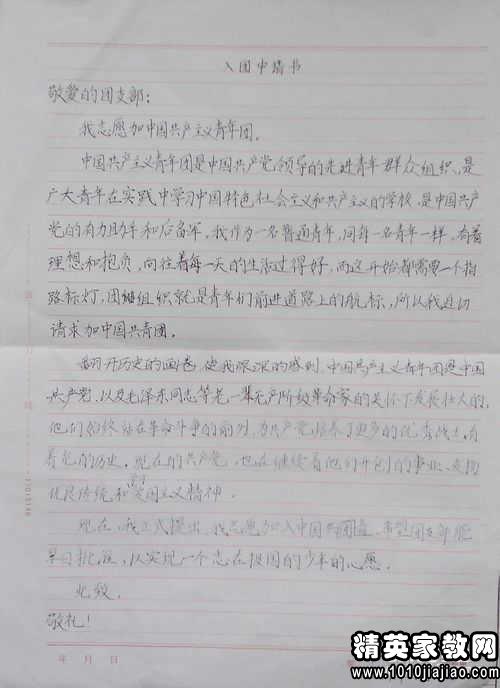 入团申请书
敬爱的团支部:
我志愿加中国共产主义青年团。
中国共产主义青年团是中国共产党领导的先进青年群众组织,是
广大青年在实践中学习中国特色社会主义和共产主义的学校,是中国共产
党的有力助手和后备军,我作为一名普通青年,同每一名青年一样,有着
理想和抱负,向往着每一天的生活过得好,而这开始都需要一个指
路标灯,团组织就是青年们前进道路上的航标,所以我迫切
请求加中国共青团。
翻开历史的画卷,使我深深的感到,中国共产主义青年团是中国
共产党,以及毛泽东同志等老一辈无产阶级革命家的关怀下发展壮大的,
他们始终站在革命斗争的前列,为共产党培养了更多的优秀战士,有
着光的历史,现在的共产党,也在继续着他们开创的事业、发扬
优良传统和爱国主义精神。
现在,我正式提出,我志愿加入中国共,希望团支部能
早日批准,以实现一个志在报国的少年的心愿。
此致,
敬礼!
年 月 日
精英家教网
www.1010jiajiao.com